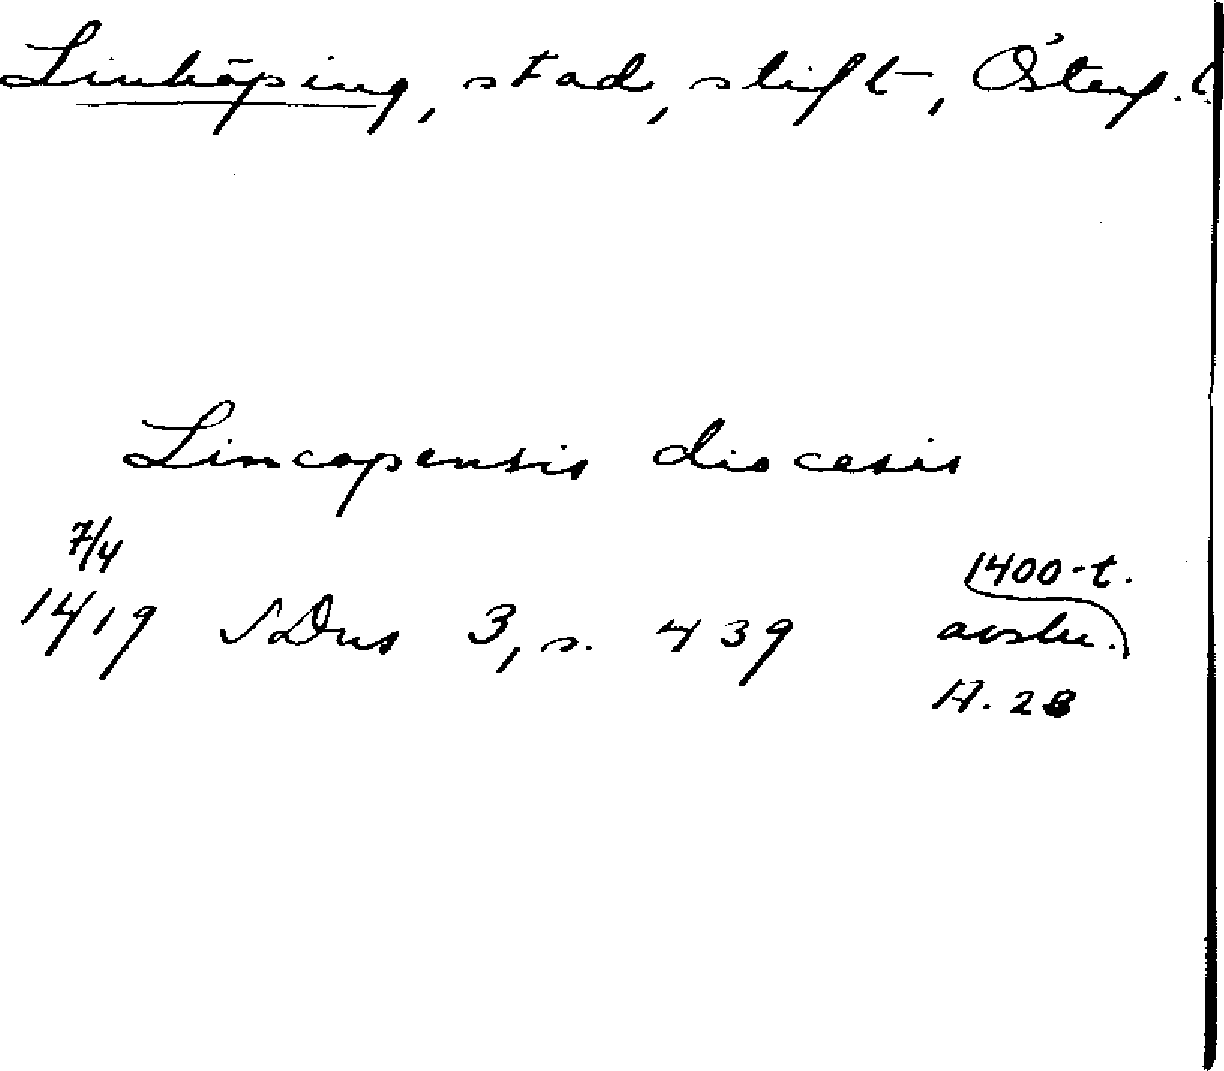 Linköping, stad, stift, Österg. l
Lincopensis diocesis
7/4
1419 SDns 3, s. 439
1400-t.
avskr.
A. 28